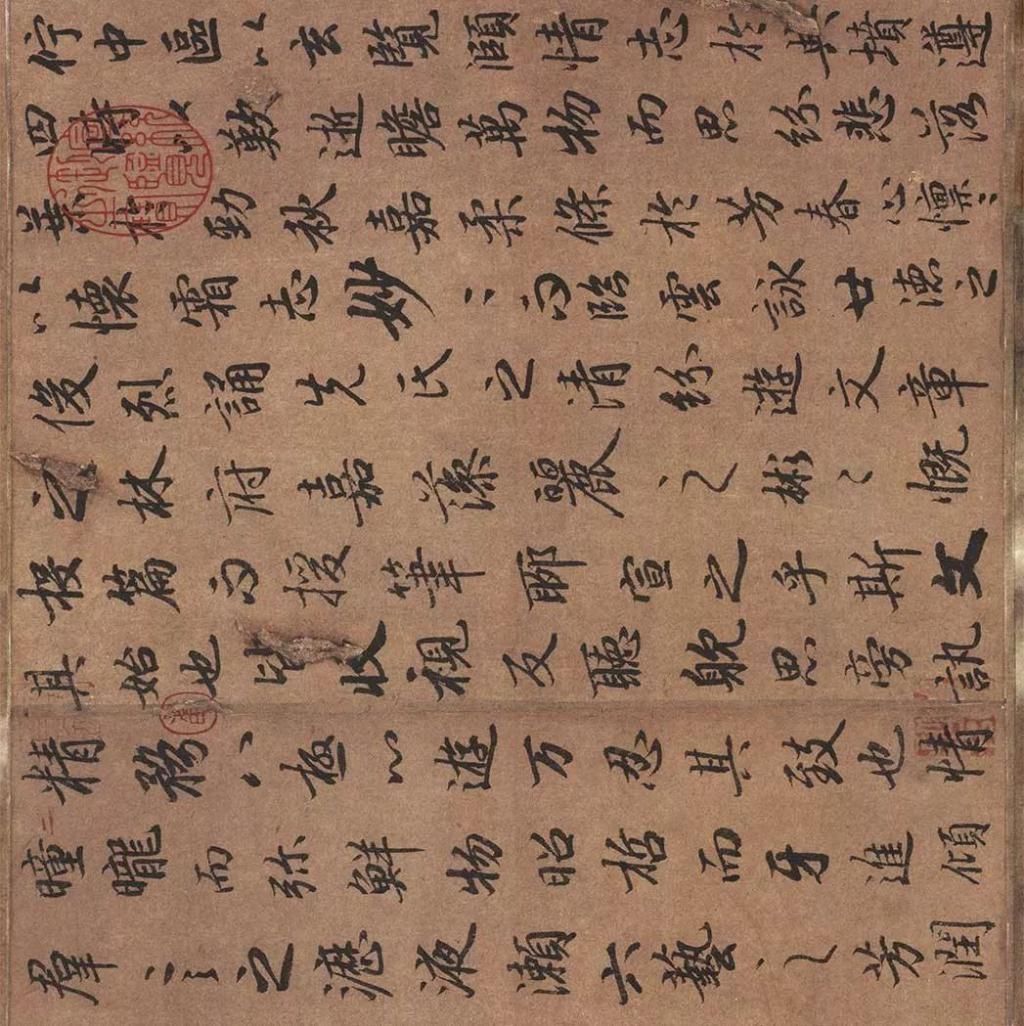 佇中區以玄覽頤情志於典墳遵
四時以歎逝瞻萬物而思紛悲落
葉於勁秋嘉柔條於芳春心懍〻
以懷霜志妙〻而臨雲詠世德之
俊烈誦先民之清紛遊文章
之林府嘉藻麗之彬〻慨
投篇而援筆聊宣之乎斯文
其始也皆收視反聽躭思旁訊
精騖八極心遊万忍其致也情
曈曨而弥鮮物昭晢而牙進傾
羣言之瀝液漱六藝之芳潤